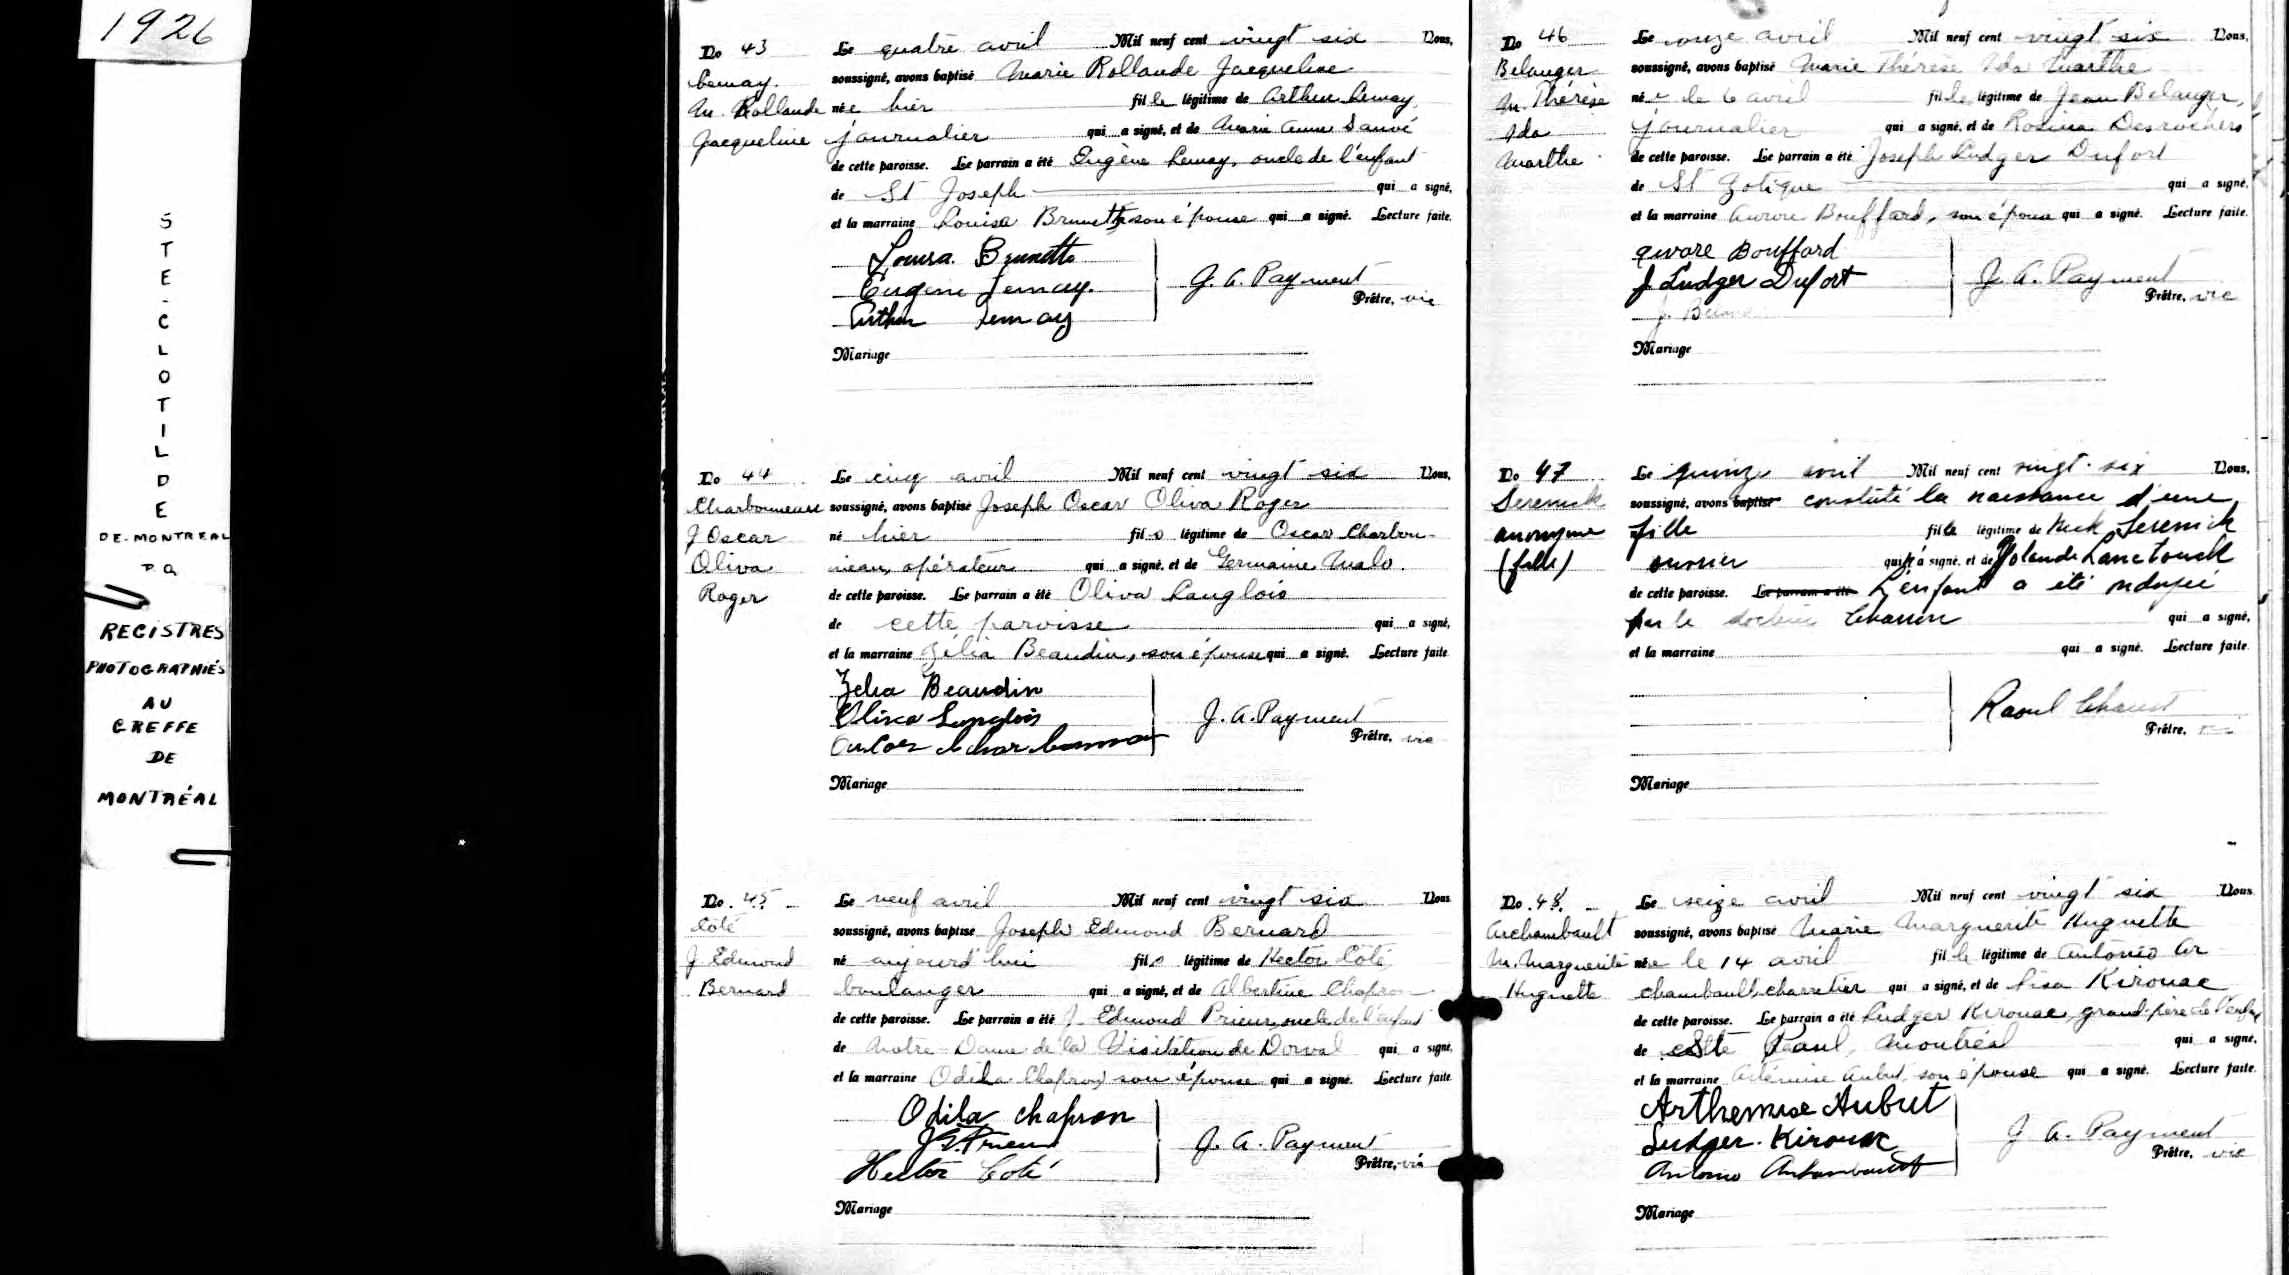 1926
STE-CLOTILDE
DE-MONTREAL
P.Q.
REGISTRES
PHOTOGRAPHIÉS
AU
GREFFE
DE
MONTRÉAL
No 43 Le quatre avril Mil neuf cent vingt six Nous,
Lemay. soussigné, avons baptisé Marie Rollande Jacqueline
M. Rollande née hier fille légitime de Arthur Lemay
Jacqueline journalier qui a signé, et de Marie Anne Sauvé
de cette paroisse. Le parrain a été Eugène Lemay, oncle de l'enfant
de St Joseph qui a signé,
et la marraine Louisa Brunette son épouse qui a signé. Lecture faite.
Louisa Brunette
Eugene Lemay. J. A. Payment
Prêtre, vic
Arthur Lemay
Mariage
No 44 Le cinq avril Mil neuf cent vingt six Nous,
Charbonneau soussigné, avons baptisé Joseph Oscar Oliva Roger
J Oscar né hier fils légitime de Oscar Charbon-
Oliva neau, opérateur qui a signé, et de Germaine Malo.
Roger de cette paroisse. Le parrain a été Oliva Langlois
de cette paroisse qui a signé,
et la marraine Zélia Beaudin, son épouse qui a signé. Lecture faite
Zelia Beaudin
Oliva Langlois J. A. Payment
Prêtre, vic
Mariage
No. 45 Le neuf avril Mil neuf cent vingt six Nous
Côté soussigné, avons baptisé Joseph Edmond Bernard
J Edmond né aujourd'hui fils légitime de Hector Côté
Bernard boulanger qui a signé, et de Albertine Chapron
de cette paroisse. Le parrain a été J. Edmond Prieur, oncle de l'enfant
de Notre-Dame de la Visitation de Dorval qui a signé,
et la marraine Odila Chapron son épouse qui a signé. Lecture faite
Odila Chapron
J E Prieur J. A. Payment
Prêtre, vic
Hector Coté
Mariage
No 46 Le onze avril Mil neuf cent vingt six Nous,
Belanger soussigné, avons baptisé Marie Thérèse Ida Marthe
M. Thérèse née le 6 avril fille légitime de Jean Belanger,
Ida journalier qui a signé, et de Rosina Desrochers
Marthe de cette paroisse. Le parrain a été Joseph Ludger Dufort
de St Zotique qui a signé,
et la marraine Aurore Bouffard, son épouse qui a signé. Lecture faite.
Bouffard
J Ludger Dufort J. A. Payment
Prêtre, vic
Mariage
No 47 Le quinze avril Mil neuf cent vingt-six Nous,
Serenick soussigné, avons baptisé constaté la naissance d'une
anonyme fille fille légitime de Nick Serenick
(fille) ouvrier qui a signé, et de Yolande Lanctouck
de cette paroisse. Le parrain a été L'enfant a été ondoyée
par le docteur qui a signé,
et la marraine qui a signé. Lecture faite
Raoul
Prêtre,
Mariage
No. 48. Le seize avril Mil neuf cent vingt six Nous
Archambault soussigné, avons baptisé Marie Marguerite Huguette
M. Marguerite née le 14 avril fille légitime de Antonio Ar
Huguette chambault, charretier qui a signé, et de Lisa Kirouac
de cette paroisse. Le parrain a été Ludger Kirouac, grand-père de l'enfant
de Paul, Montréal qui a signé,
et la marraine Artémise Aubut, son épouse qui a signé. Lecture faite.
Arthemise Aubut
Ludger Kirouac J A. Payment
Prêtre, vic
Antonio Archambault
Mariage